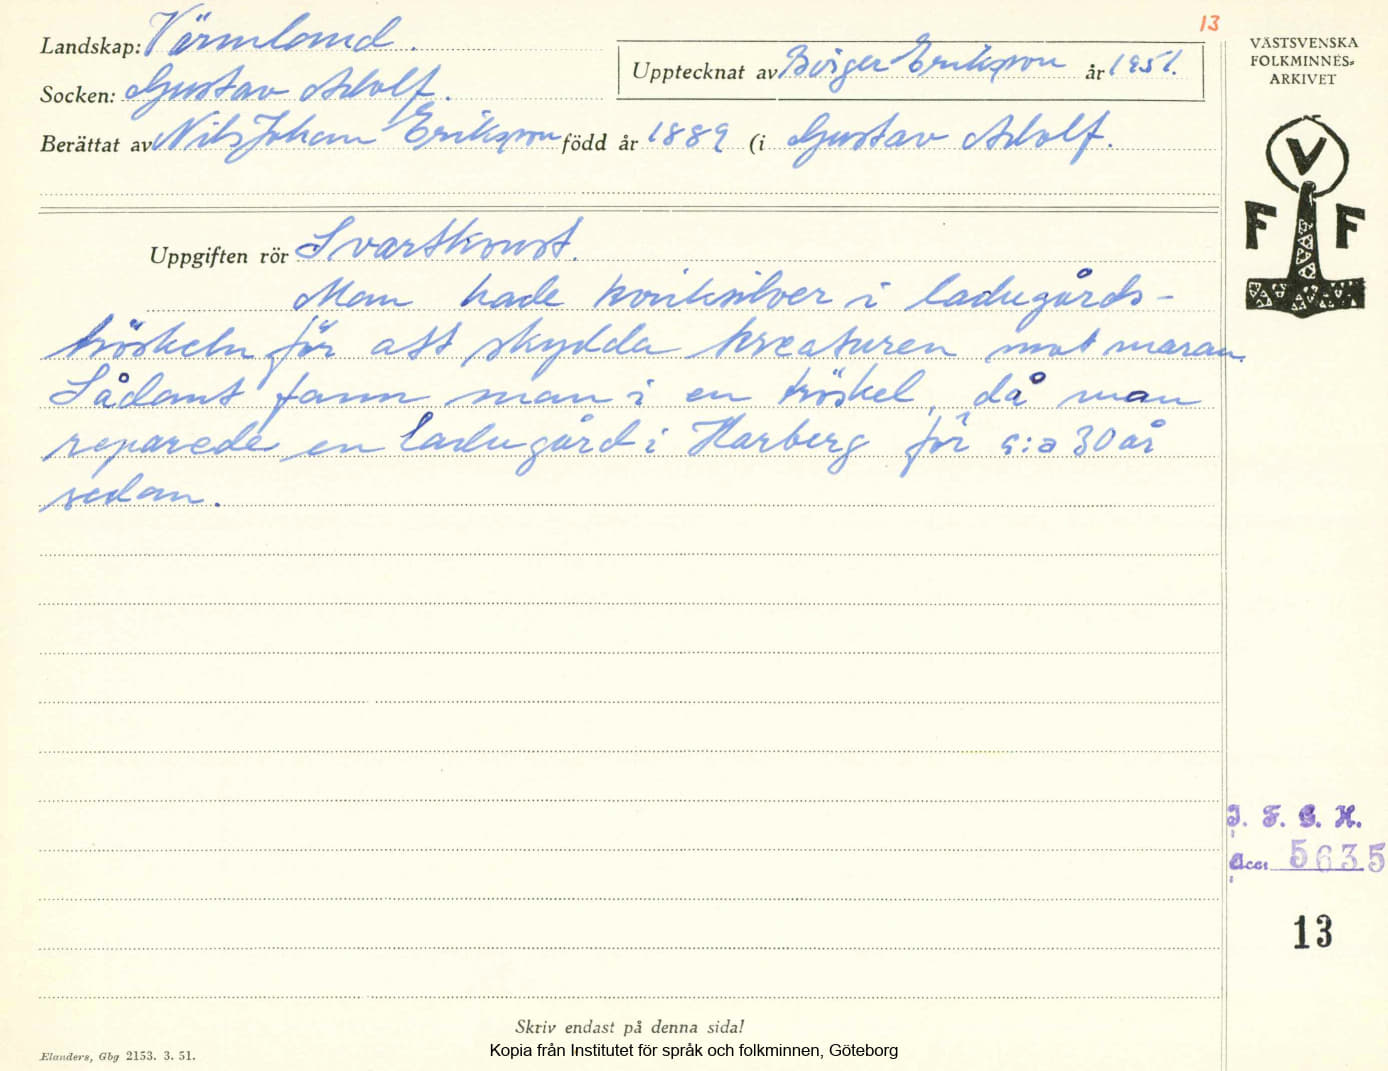 13
Landskap: Värmland.
Socken: Gustav Adolf.
Upptecknat av Birger Erikson år 1951.
Berättat av Nils Johan Erikson född år 1889 (i Gustav Adolf.
VÄSTSVENSKA
FOLKMINNES-
ARKIVET
V
F F
Uppgiften rör Svartkonst.
Man hade kvicksilver i ladugårds-
tröskeln för att skydda kreaturen mot maran.
Sådant fann man i en tröskel, då man
reparede en ladugård i Harberg för c:a 30 år
sedan.
I. F. G. H.
Acc: 5635
13
Skriv endast på denna sida!
Elanders, Gbg 2153. 3. 51.
Kopia från Institutet för språk och folkminnen, Göteborg